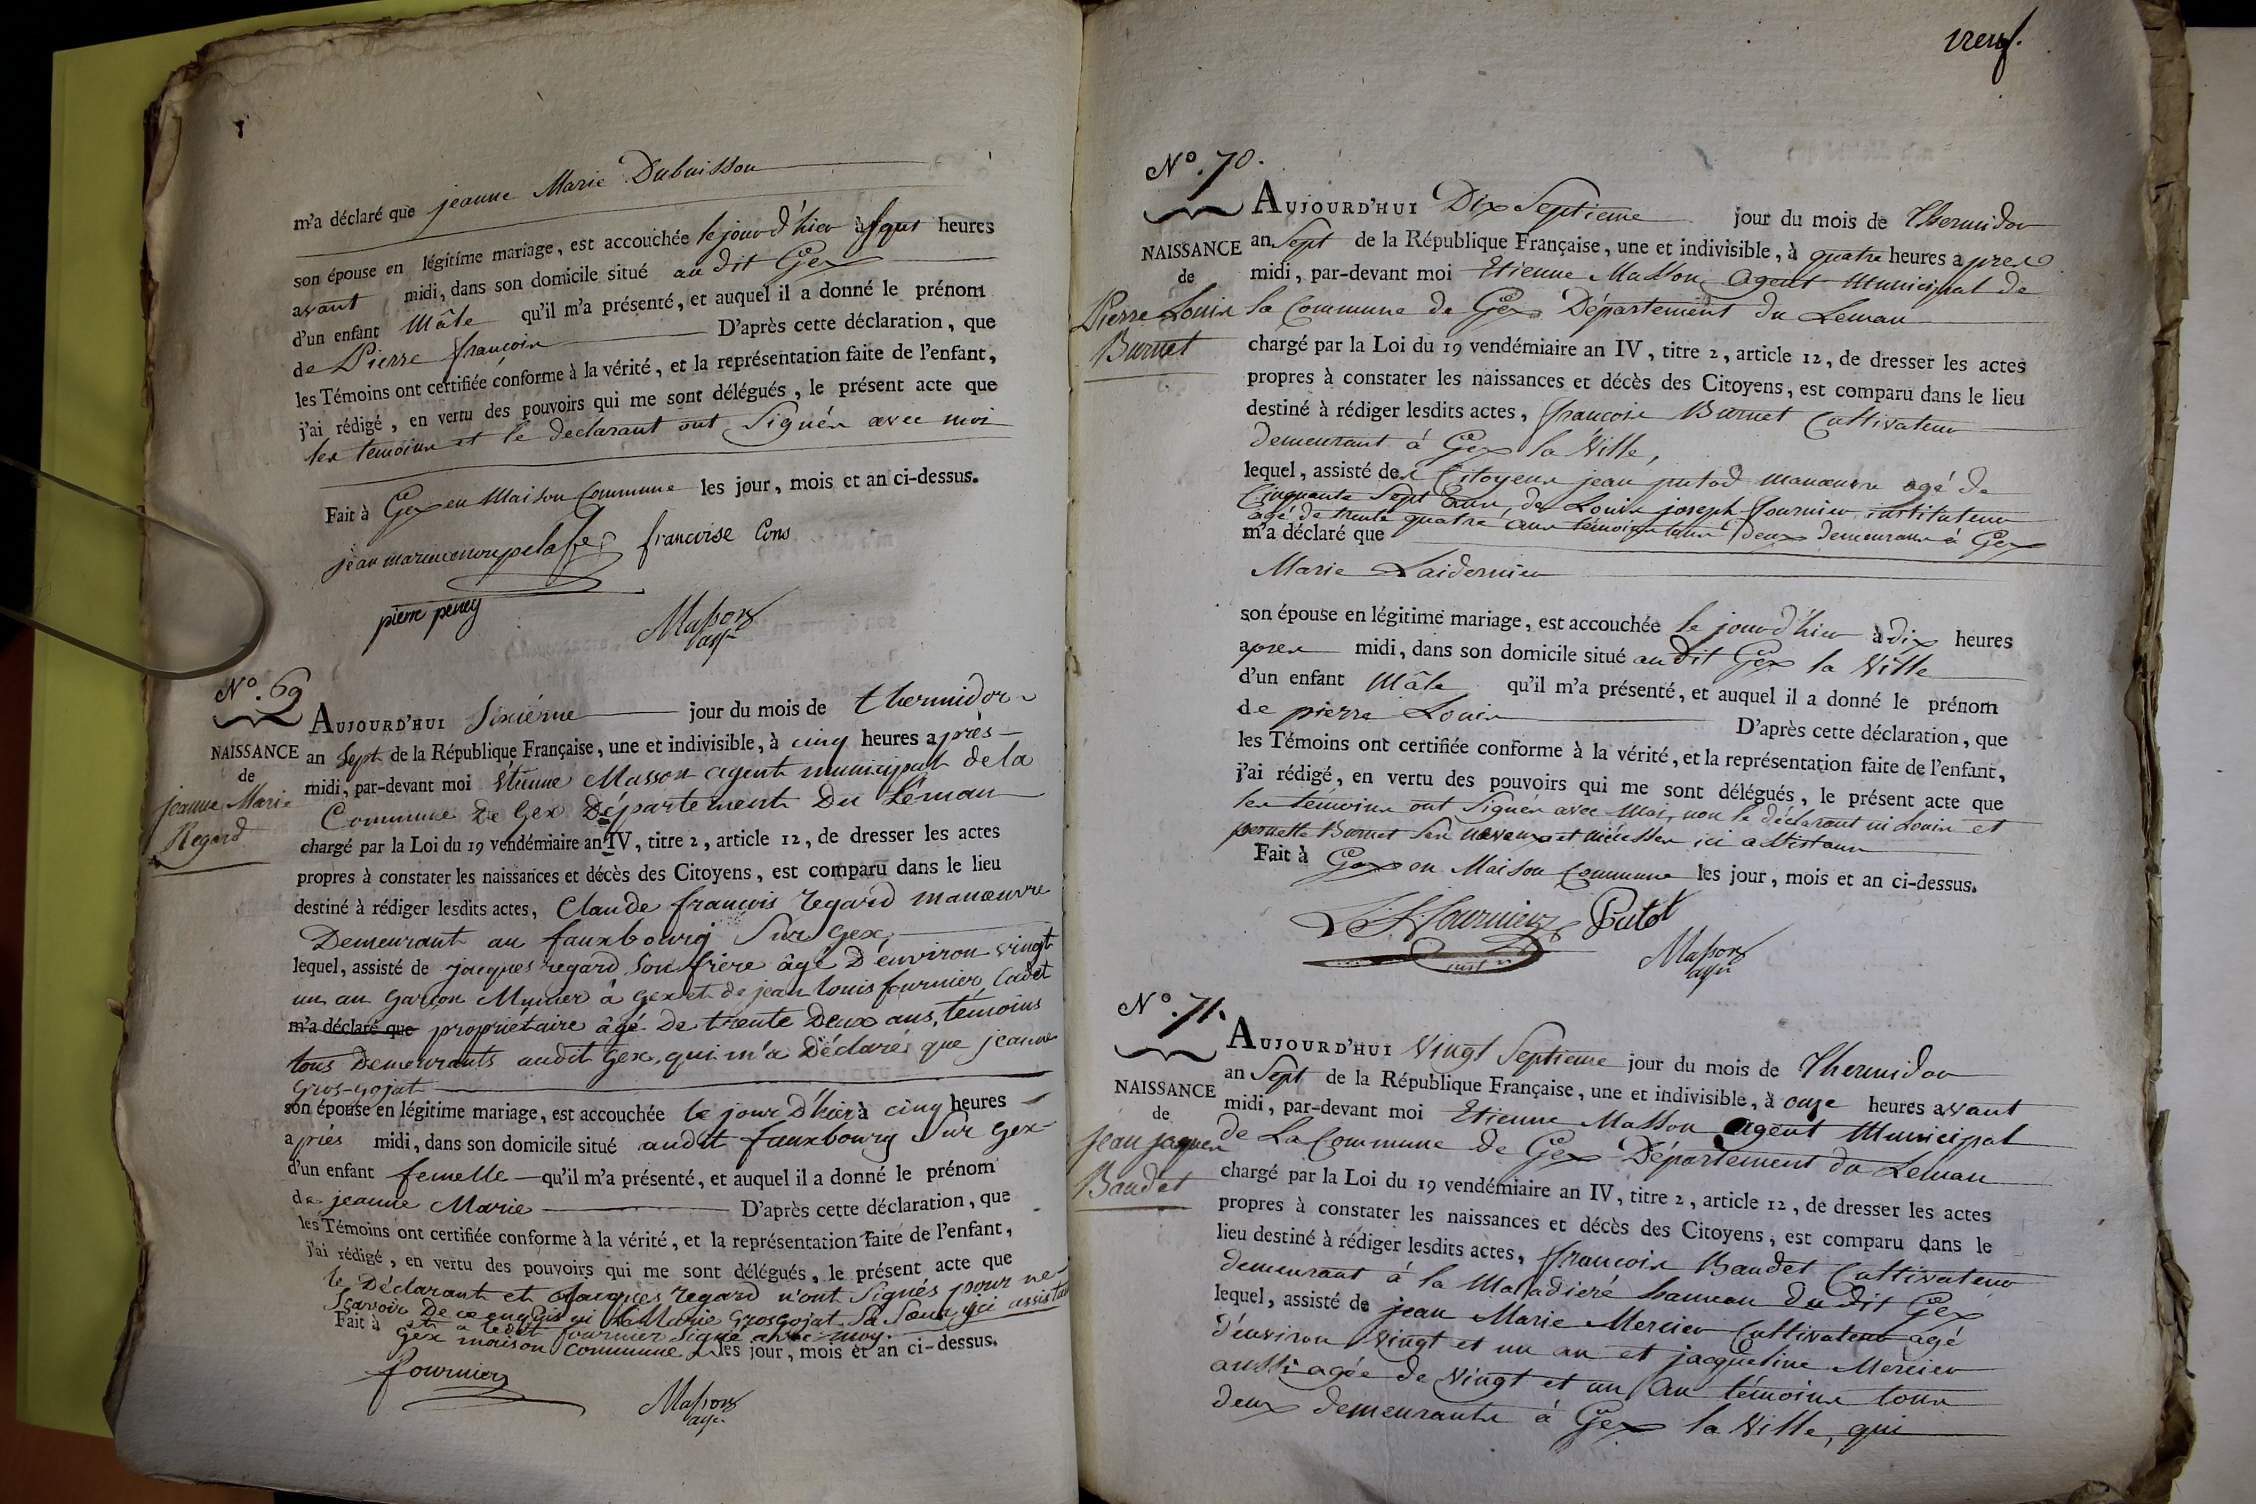 m'a déclaré que jeanne Marie Dubuisson
son épouse en légitime mariage, est accouchée le jour d'hier à sept heures
avant midi, dans son domicile situé au dit Gex
d'un enfant Mâle qu'il m'a présenté, et auquel il a donné le prénom
de Pierre françois D'après cette déclaration, que
les Témoins ont certifiée conforme à la vérité, et la représentation faite de l'enfant,
j'ai rédigé, en vertu des pouvoirs qui me sont délégués, le présent acte que
les temoins et le declarant ont Signés avec moi
Fait à Gex en Maison Commune les jour, mois et an ci-dessus.
francoise Cons
pierre peney
Masson
agt
N.º 69
AUJOURD'HUI Sixiéme jour du mois de thermidor
NAISSANCE
de
jeanne Marie
Regard
an Sept de la République Française, une et indivisible, à cinq heures après
midi, par-devant moi Etienne Masson agent municipal de la
Commune De Gex Département Du Léman
chargé par la Loi du 19 vendémiaire an IV, titre 2, article 12, de dresser les actes
propres à constater les naissances et décès des Citoyens, est comparu dans le lieu
destiné à rédiger lesdits actes, Claude françois regard manœuvre
Demeurant au fauxbourg Sur Gex,
lequel, assisté de jacques regard Son frère âgé D'environ vingt
un an garçon Munier à Gex et de jean louis fournier Cadet
m'a déclaré que propriétaire âgé De trente Deux ans, témoins
tous Demeurants audit Gex, qui m'a Déclaré, que jeanne
Gros-gojat
son épouse en légitime mariage, est accouchée le jour D'hier à cinq heures
après midi, dans son domicile situé audit fauxbourg Sur Gex
d'un enfant femelle qu'il m'a présenté, et auquel il a donné le prénom
de jeanne Marie D'après cette déclaration, que
les Témoins ont certifiée conforme à la vérité, et la représentation faite de l'enfant,
j'ai rédigé, en vertu des pouvoirs qui me sont délégués, le présent acte que
le Déclarant et jacques regard n'ont Signés pour ne
Scavoir De ce enquis ni la Marie Grosgojat Sa Sœur ici assistant
a ledit fournier Signé avec moy.
Fait à Gex maison Commune les jour, mois et an ci-dessus.
fournier
Masson
agt
neuf.
N.º 70.
AUJOURD'HUI Dix Septieme jour du mois de Thermidor
NAISSANCE
de
Pierre Louis
Burnet
an Sept de la République Française, une et indivisible, à quatre heures apres
midi, par-devant moi Etienne Masson, Agent Municipal de
la Commune de Gex Département du Leman
chargé par la Loi du 19 vendémiaire an IV, titre 2, article 12, de dresser les actes
propres à constater les naissances et décès des Citoyens, est comparu dans le lieu
destiné à rédiger lesdits actes, francois Burnet Cultivateur
demeurant à Gex la Ville,
lequel, assisté des Citoyens jean putod manœuvre agé de
Cinquante Sept ans, de Louis joseph fournier instituteur
agé de trente quatre ans témoins tous deux demeurans à Gex
m'a déclaré que
Marie Laidernier
son épouse en légitime mariage, est accouchée le jour d'hier à dix heures
apres midi, dans son domicile situé au dit Gex la Ville
d'un enfant Mâle qu'il m'a présenté, et auquel il a donné le prénom
de pierre Louis D'après cette déclaration, que
les Témoins ont certifiée conforme à la vérité, et la représentation faite de l'enfant,
j'ai rédigé, en vertu des pouvoirs qui me sont délégués, le présent acte que
les témoins ont Signés avec Moi, non le déclarant ni Louis et
pernette Burnet Ses neveux et niéesses ici assistans
Fait à Gex en Maison Commune les jour, mois et an ci-dessus.
L. J. Fournier Putod
inst
Masson
agt
N.º 71.
AUJOURD'HUI Vingt Septieme jour du mois de Thermidor
NAISSANCE
de
jean jaques
Baudet
an Sept de la République Française, une et indivisible, à onze heures avant
midi, par-devant moi Etienne Masson Agent Municipal
de La Commune de Gex Département du Leman
chargé par la Loi du 19 vendémiaire an IV, titre 2, article 12, de dresser les actes
propres à constater les naissances et décès des Citoyens, est comparu dans le
lieu destiné à rédiger lesdits actes, francois Baudet Cultivateur
demeurant à la Maladiére hameau du dit Gex
lequel, assisté de jean Marie Mercier Cultivateur agé
d'environ Vingt et un an et jacqueline Mercier
aussi agée de Vingt et un an témoins tous
deux demeurants à Gex la Ville, qui